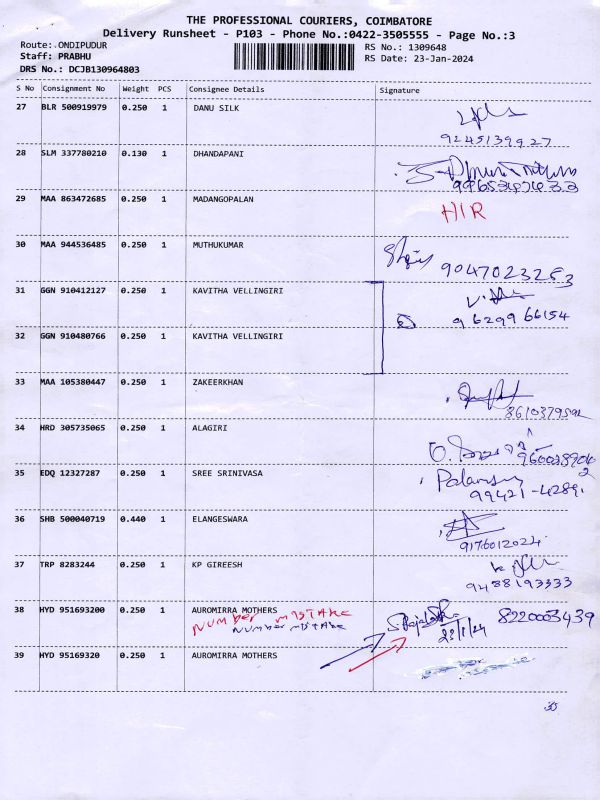 THE PROFESSIONAL COURIERS, COIMBATORE
Delivery Runsheet - P103 - Phone No.:0422-3505555 - Page No.:3
Route:.ONDIPUDUR
RS No.: 1309648
Staff: PRABHU
RS Date: 23-Jan-2024
DRS No.: DCJB130964803
S No Consignment No Weight PCS Consignee Details Signature
27 BLR 500919979 0.250 1 DANU SILK
9245139927
28 SLM 337780210 0.130 1 DHANDAPANI
29 MAA 863472685 0.250 1 MADANGOPALAN
HIR
30 MAA 944536485 0.250 1 MUTHUKUMAR
9047023253
31 GGN 910412127 0.250 1 KAVITHA VELLINGIRI
9629966154
32 GGN 910480766 0.250 1 KAVITHA VELLINGIRI
33 MAA 105380447 0.250 1 ZAKEERKHAN
34 HRD 305735065 0.250 1 ALAGIRI
35 EDQ 12327287 0.250 1 SREE SRINIVASA
99421-4289
36 SHB 500040719 0.440 1 ELANGESWARA
9176012024
37 TRP 8283244 0.250 1 KP GIREESH
9488193333
38 HYD 951693200 0.250 1 AUROMIRRA MOTHERS
8220003439
NUMBER MISTAKE
NUMBER MISTAKE
23/1/24
39 HYD 95169320 0.250 1 AUROMIRRA MOTHERS